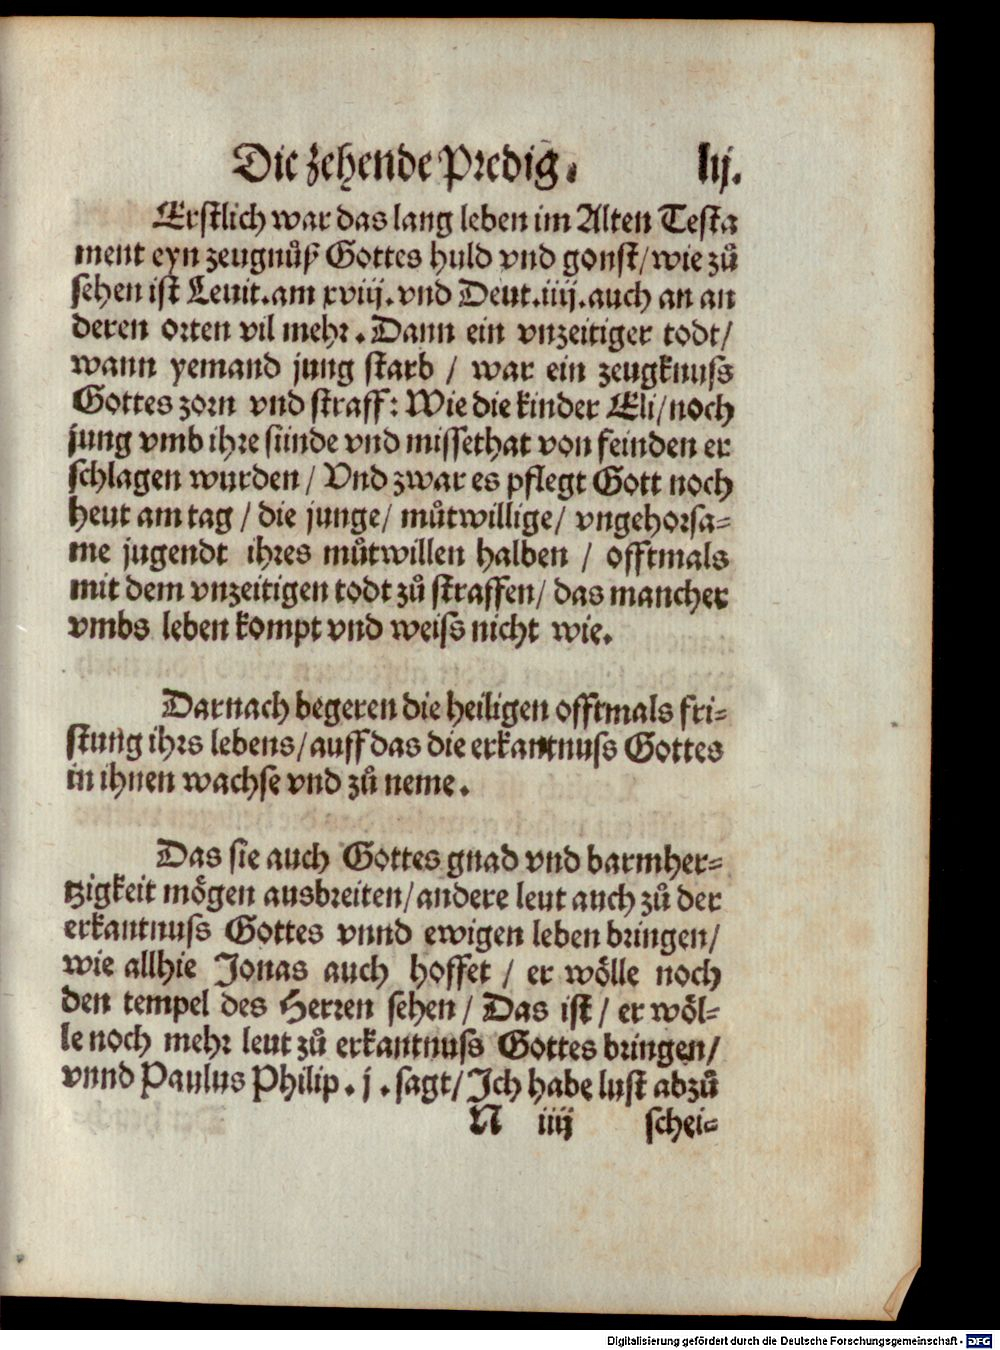 Die zehende Predig. lij.
Erstlich war das lang leben im Alten Testa
ment eyn zeugnůß Gottes huld vnd gonst/wie zů
sehen ist Leuit.am xviij.vnd Deut.iiij.auch an an
deren orten vil mehr. Dann ein vnzeitiger todt/
wann yemand jung starb / war ein zeugknuss
Gottes zorn vnd straff: Wie die kinder Eli/noch
jung vmb ihre sünde vnd missethat von feinden er
schlagen wurden/ Vnd zwar es pflegt Gott noch
heut am tag / die junge/ můtwillige/ vngehorsa-
me jugendt ihres můtwillen halben / offtmals
mit dem vnzeitigen todt zů straffen/ das mancher
vmbs leben kompt vnd weiss nicht wie.
Darnach begeren die heiligen offtmals fri-
stung ihrs lebens/auff das die erkantnuss Gottes
in ihnen wachse vnd zů neme.
Das sie auch Gottes gnad vnd barmher-
tzigkeit mögen ausbreiten/andere leut auch zů der
erkantnuss Gottes vnnd ewigen leben bringen/
wie allhie Jonas auch hoffet / er wölle noch
den tempel des Herren sehen/ Das ist/ er wöl-
le noch mehr leut zů erkantnuss Gottes bringen/
vnnd Paulus Philip. j. sagt/ Ich habe lust abzů
N iiij schei-
Digitalisierung gefördert durch die Deutsche Forschungsgemeinschaft - DFG